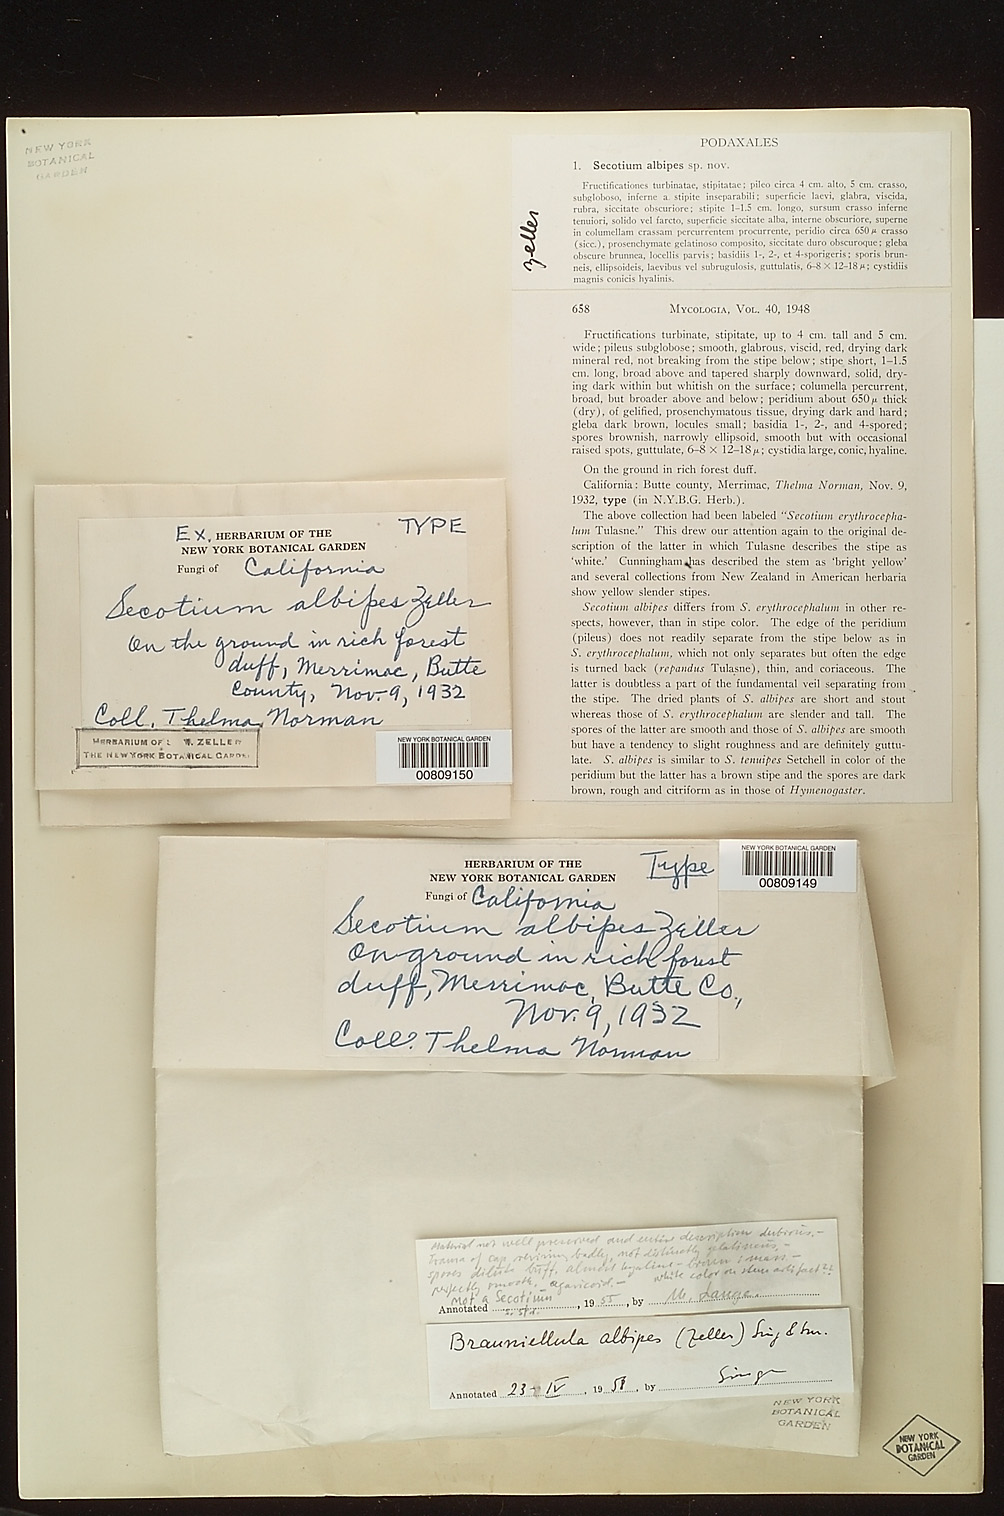 NEW YORK
BOTANICAL
GARDEN
PODAXALES
1. Secotium albipes sp. nov.
Fructificationes turbinatae, stipitatae; pileo circa 4 cm. alto, 5 cm. crasso,
subgloboso, inferne a stipite inseparabili; superficie laevi, glabra, viscida,
rubra, siccitate obscuriore; stipite 1–1.5 cm. longo, sursum crasso inferne
tenuiori, solido vel farcto, superficie siccitate alba, interne obscuriore, superne
in columellam crassam percurrentem procurrente, peridio circa 650 μ crasso
(sicc.), prosenchymate gelatinoso composito, siccitate duro obscuroque; gleba
obscure brunnea, locellis parvis; basidiis 1-, 2-, et 4-sporigeris; sporis brun-
neis, ellipsoideis, laevibus vel subrugulosis, guttulatis, 6–8 × 12–18 μ; cystidiis
magnis conicis hyalinis.
Zeller
658 Mycologia, Vol. 40, 1948
Fructifications turbinate, stipitate, up to 4 cm. tall and 5 cm.
wide; pileus subglobose; smooth, glabrous, viscid, red, drying dark
mineral red, not breaking from the stipe below; stipe short, 1–1.5
cm. long, broad above and tapered sharply downward, solid, dry-
ing dark within but whitish on the surface; columella percurrent,
broad, but broader above and below; peridium about 650 μ thick
(dry), of gelified, prosenchymatous tissue, drying dark and hard;
gleba dark brown, locules small; basidia 1-, 2-, and 4-spored;
spores brownish, narrowly ellipsoid, smooth but with occasional
raised spots, guttulate, 6–8 × 12–18 μ; cystidia large, conic, hyaline.
On the ground in rich forest duff.
California: Butte county, Merrimac, Thelma Norman, Nov. 9,
1932, type (in N.Y.B.G. Herb.).
The above collection had been labeled “Secotium erythrocepha-
lum Tulasne.” This drew our attention again to the original de-
scription of the latter in which Tulasne describes the stipe as
‘white.’ Cunningham has described the stem as ‘bright yellow’
and several collections from New Zealand in American herbaria
show yellow slender stipes.
Secotium albipes differs from S. erythrocephalum in other re-
spects, however, than in stipe color. The edge of the peridium
(pileus) does not readily separate from the stipe below as in
S. erythrocephalum, which not only separates but often the edge
is turned back (repandus Tulasne), thin, and coriaceous. The
latter is doubtless a part of the fundamental veil separating from
the stipe. The dried plants of S. albipes are short and stout
whereas those of S. erythrocephalum are slender and tall. The
spores of the latter are smooth and those of S. albipes are smooth
but have a tendency to slight roughness and are definitely guttu-
late. S. albipes is similar to S. tenuipes Setchell in color of the
peridium but the latter has a brown stipe and the spores are dark
brown, rough and citriform as in those of Hymenogaster.
Ex. HERBARIUM OF THE TYPE
NEW YORK BOTANICAL GARDEN
Fungi of California
Secotium albipes Zeller
On the ground in rich forest
duff, Merrimac, Butte
County, Nov. 9, 1932
Coll. Thelma Norman
HERBARIUM OF L W. ZELLER
THE NEW YORK BOTANICAL GARDEN
NEW YORK BOTANICAL GARDEN
00809150
HERBARIUM OF THE Type
NEW YORK BOTANICAL GARDEN
Fungi of California
Secotium albipes Zeller
On ground in rich forest
duff, Merrimac, Butte Co.,
Nov. 9, 1932
Coll. Thelma Norman
NEW YORK BOTANICAL GARDEN
00809149
Material not well preserved and entire description dubious, –
Trama of cap reviving badly, not distinctly gelatinous, –
spores dilute buff, almost hyaline – brown in mass –
perfectly smooth, agaricoid. – white color on stem artifact??
Not a Secotium
Annotated , 1955, by M. Lange
Brauniellula albipes (Zeller) Sing & Sm.
Annotated 23-IV, 1958, by Singer
NEW YORK
BOTANICAL
GARDEN
NEW YORK
BOTANICAL
GARDEN